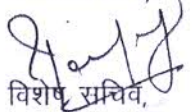 विशेष सचिव,